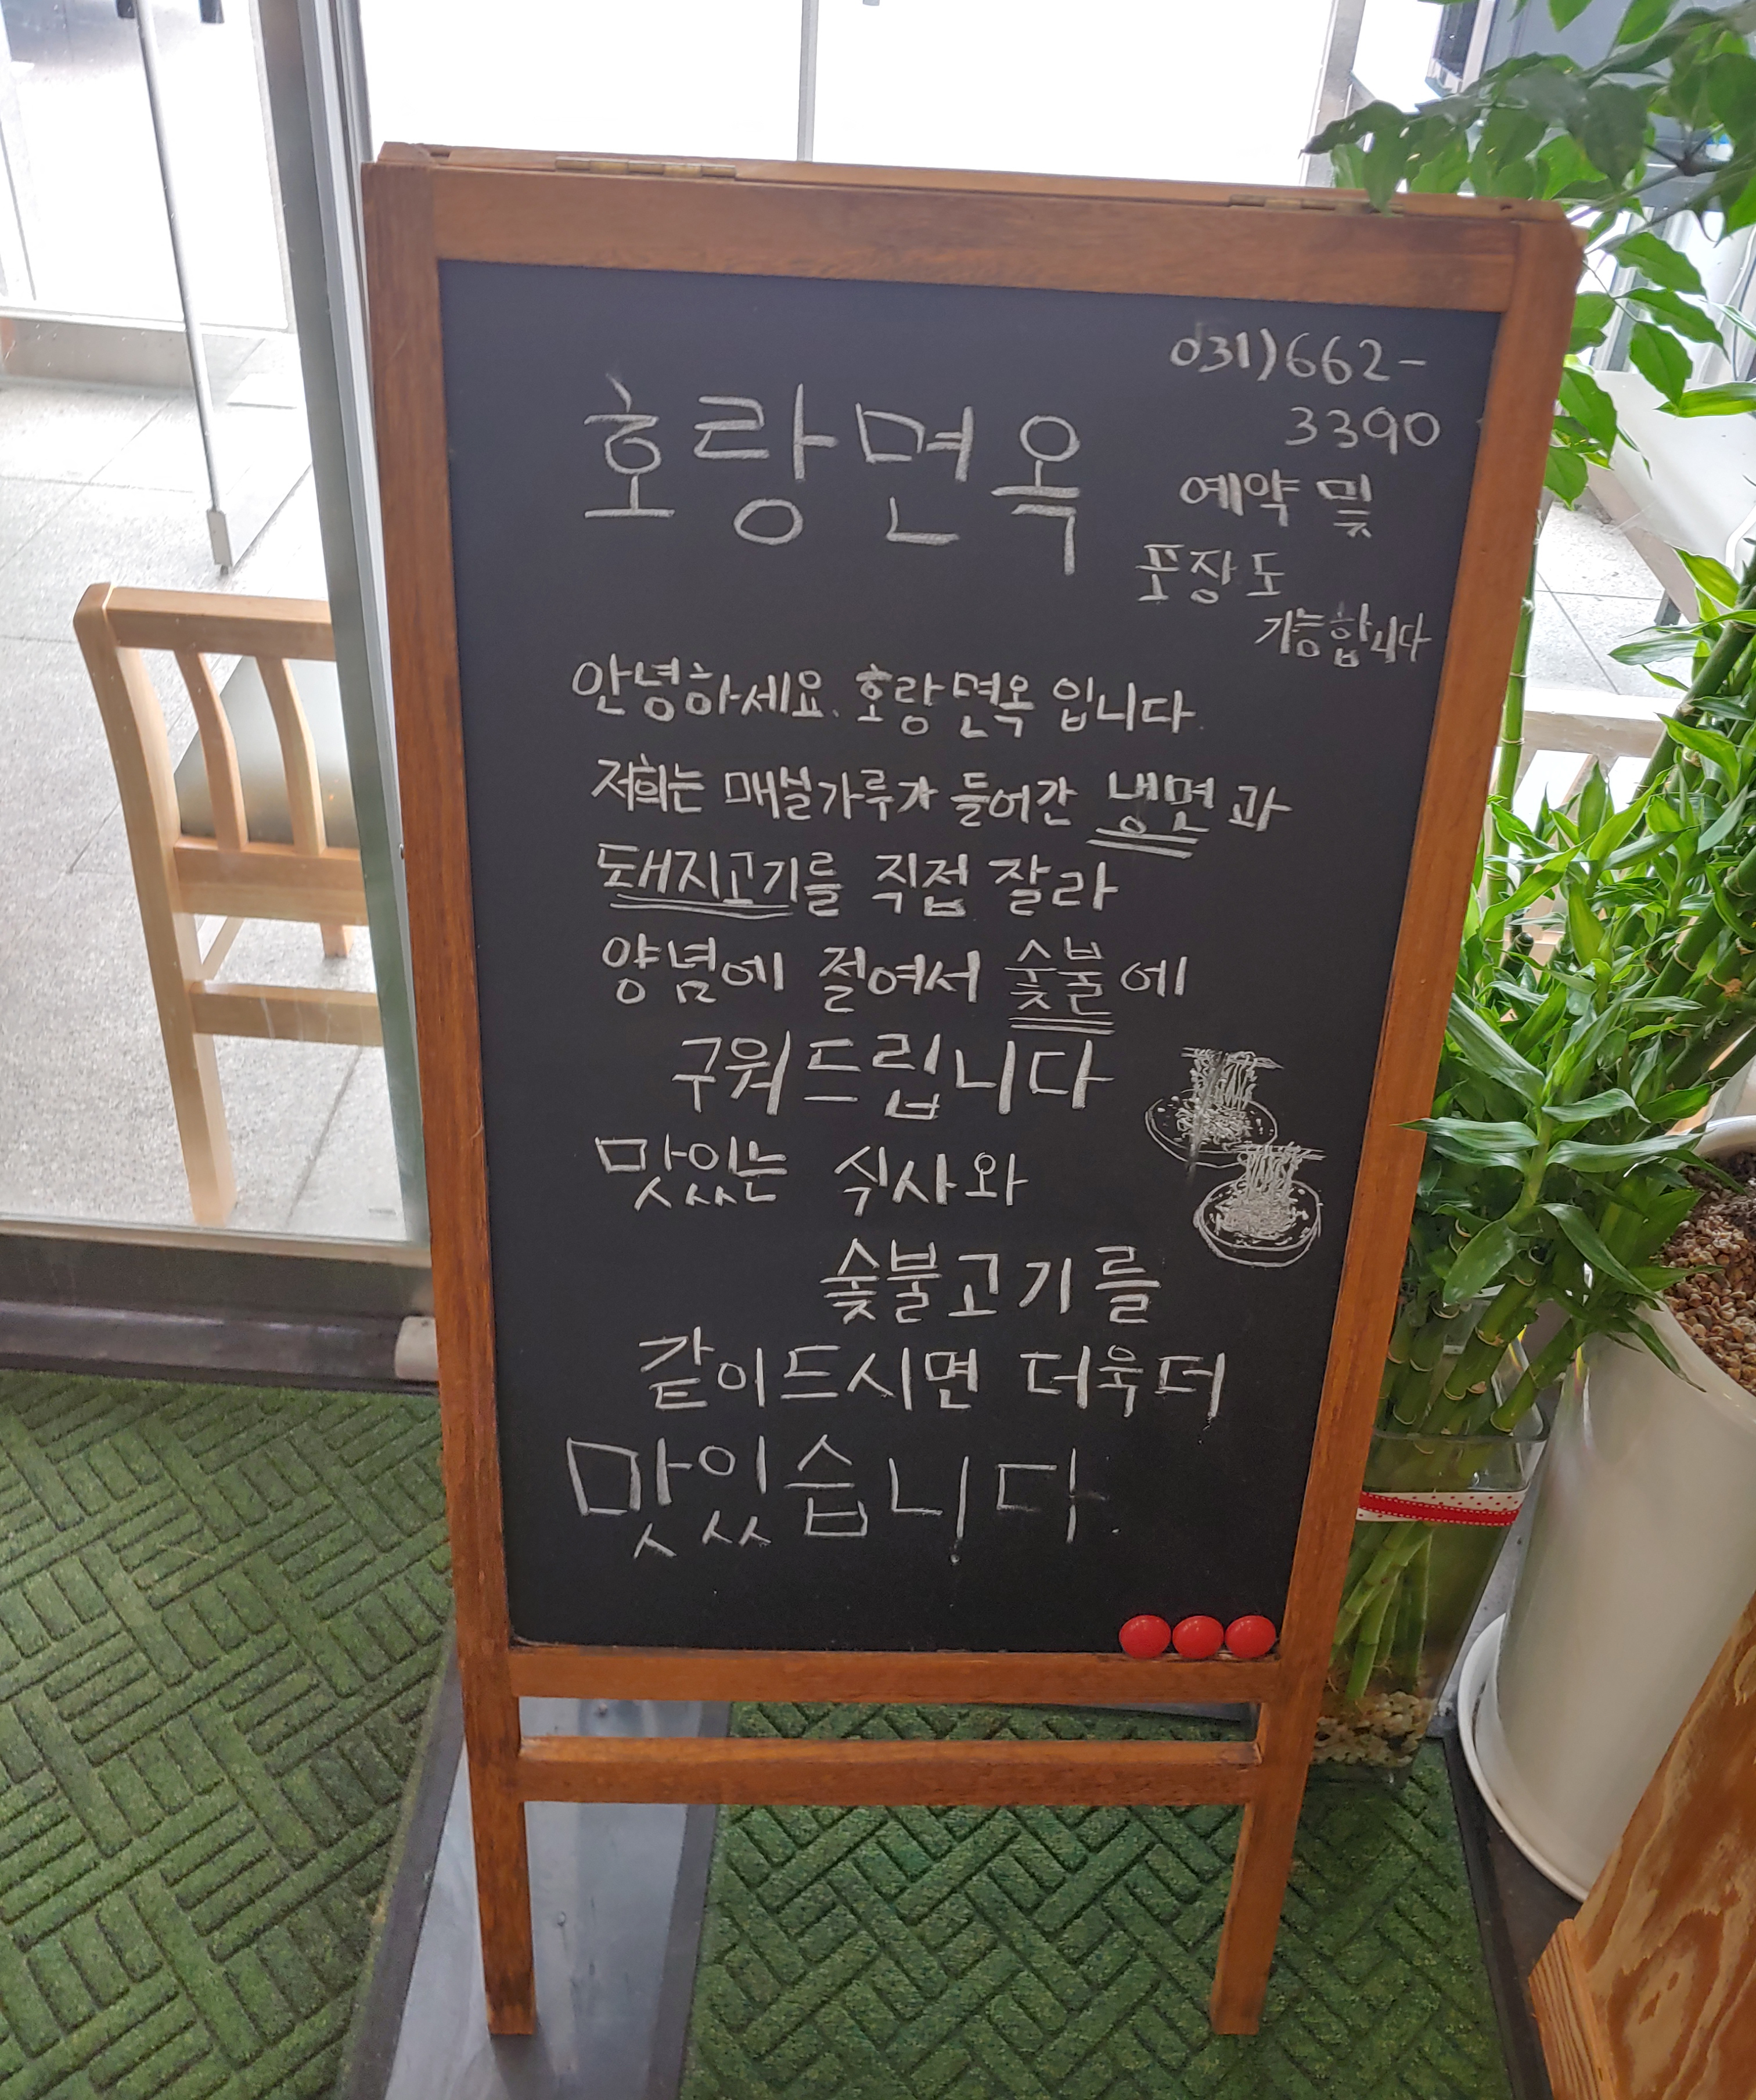 호랑면옥
031)662-
3390
예약 및
포장도
가능합니다
안녕하세요. 호랑면옥 입니다.
저희는 매실가루가 들어간 냉면과
돼지고기를 직접 잘라
양념에 절여서 숯불에
구워드립니다
맛있는 식사와
숯불고기를
같이드시면 더욱더
맛있습니다.